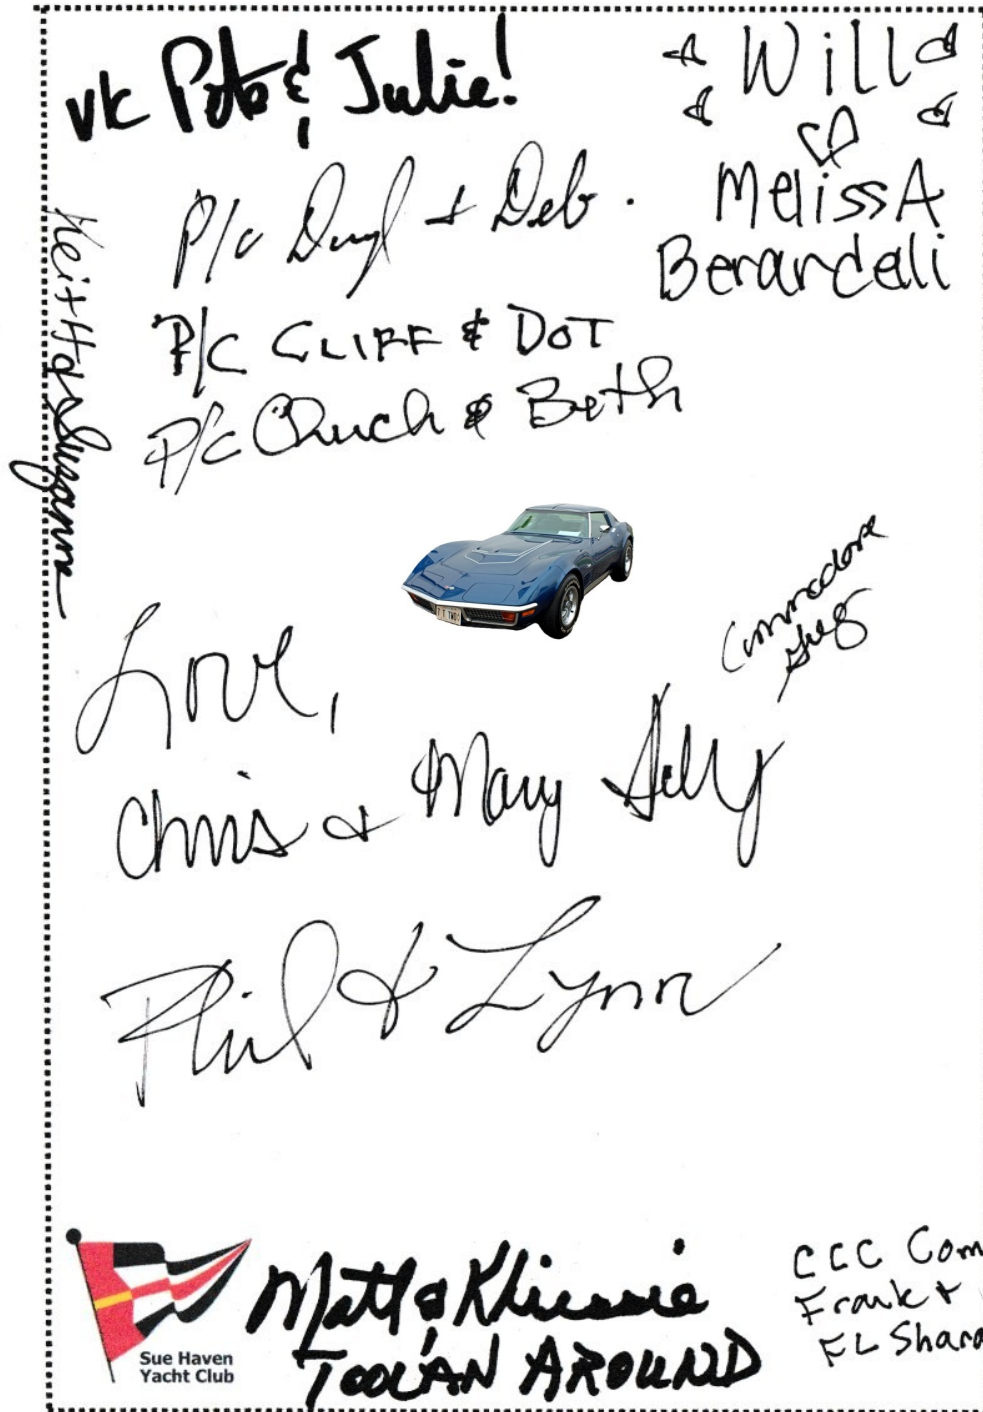 VC Pote & Julie!
Will
Melissa
Berardeli
P/c Daryl + Deb.
P/C CLIFF & DOT
P/c Chuck & Beth
Keith & Suzanne
Commodore
Greg
Love,
Chris & Mary
Phil & Lynn
Sue Haven
Yacht Club
Matt &
TOOL'AN AROUND
CCC Com
Frank +
EL Shara